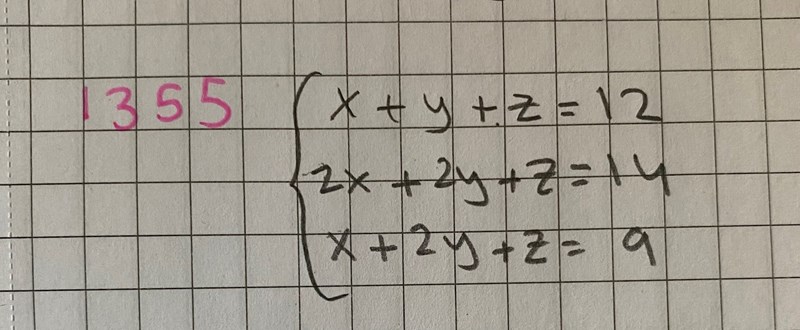 1355 x + y + z = 12
2x + 2y + z = 14
x + 2y + z = 9